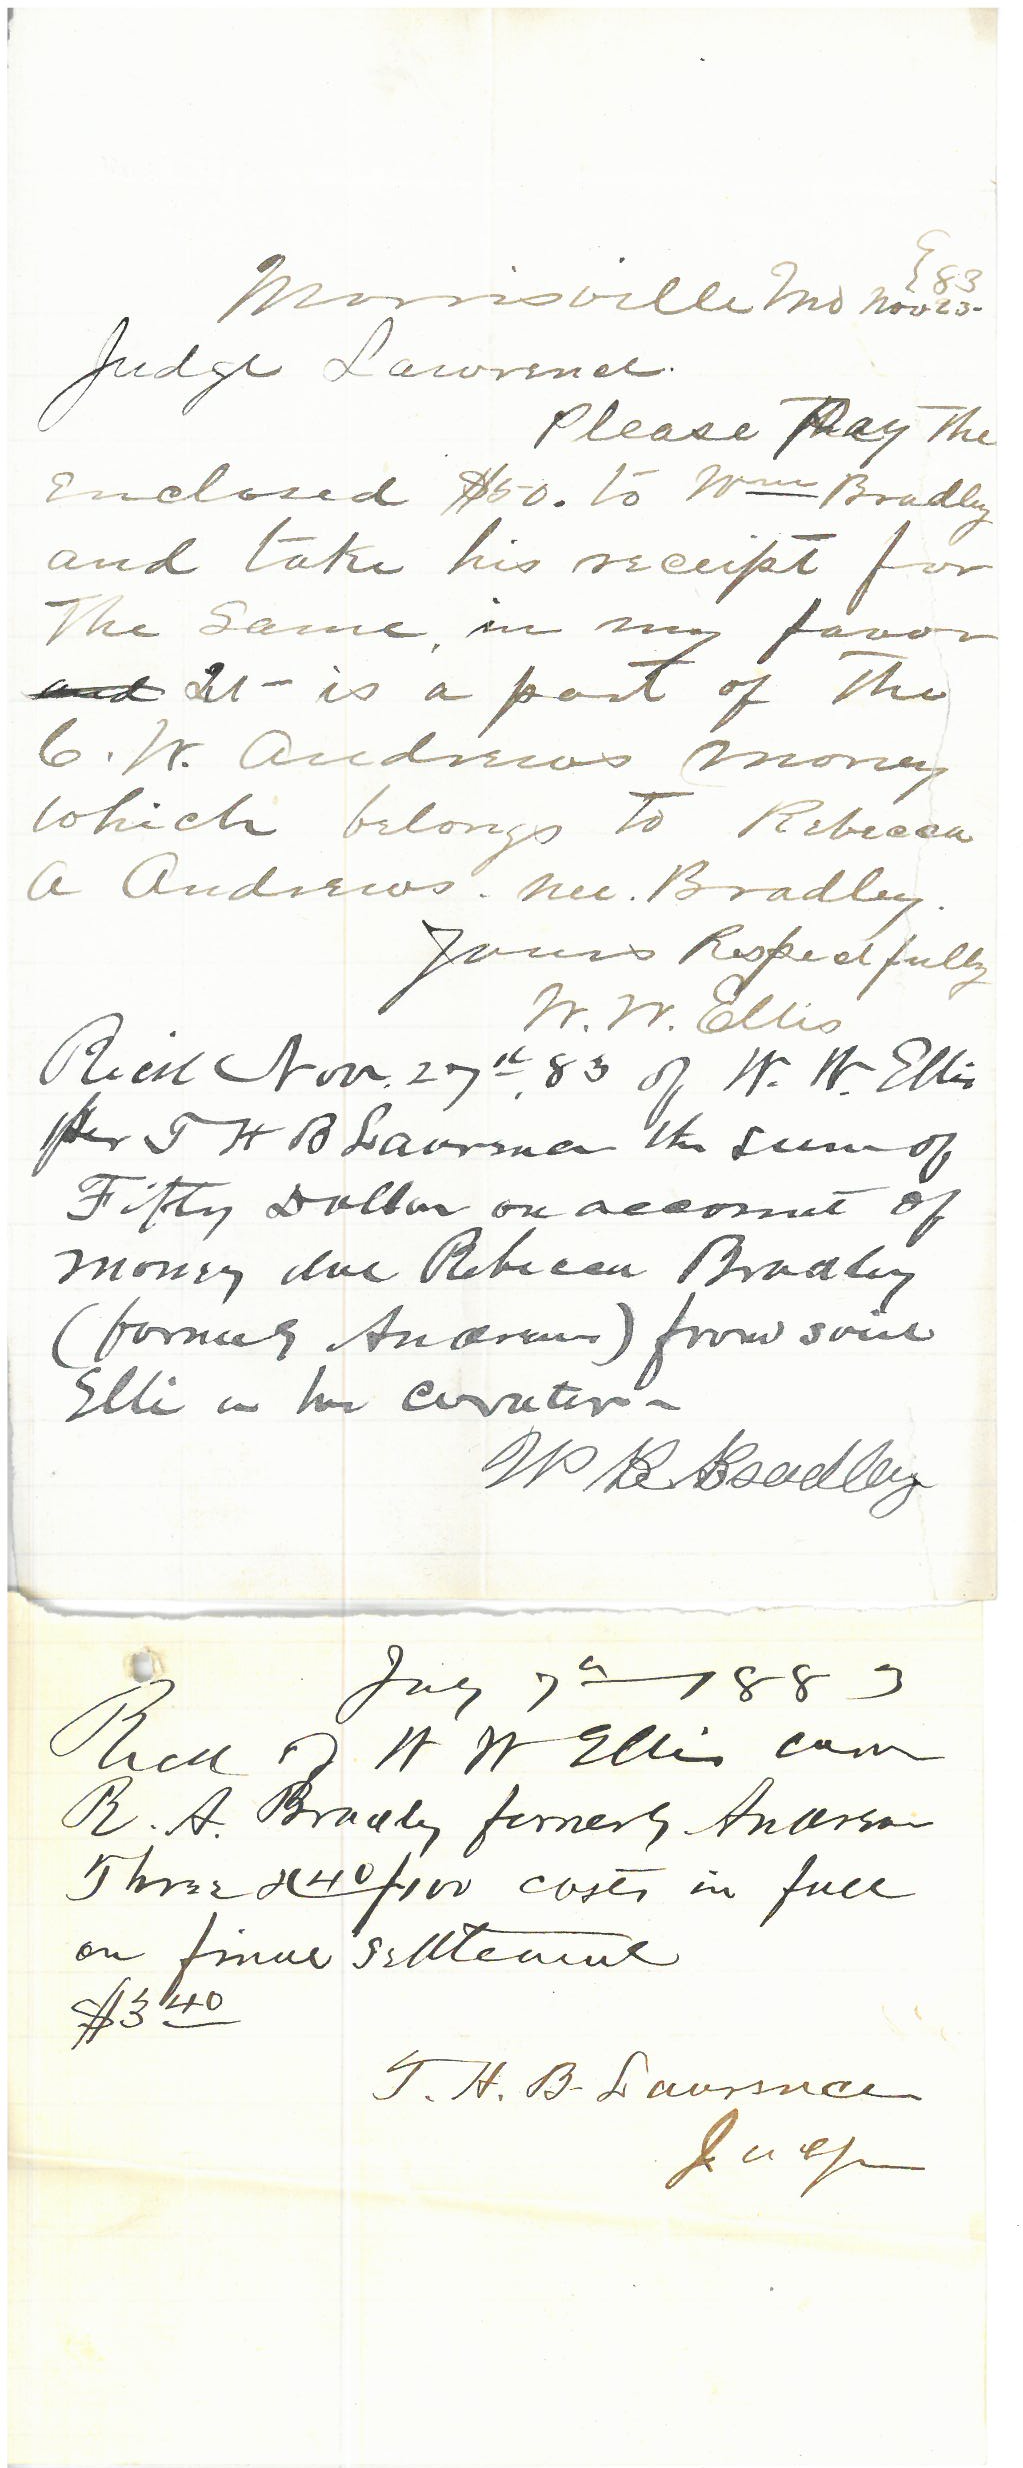 83
Morrisville Mo Nov 23-
Judge Lawrence.
Please Pay The
Enclosed $50. to Wm Bradley
and take his receipt for
The Same, in my favor
and It is a part of The
C. W. Andrews money
which belongs to Rebecca
A Andrews. nee. Bradley.
Yours Respectfully
W. W. Ellis
Recd Nov. 27th, 83 of W. W. Ellis
per T H B Lawrence the sum of
Fifty Dollars on account of
money due Rebecca Bradley
(formerly Andrews) from said
Ellis as her curator
W R Bradley
July 7th 1883
Recd of W W Ellis cura
R. A. Bradley formerly Andrews
Three & 40/100 costs in full
on final settlement
$3 40
T. H. B. Lawrence
Judge